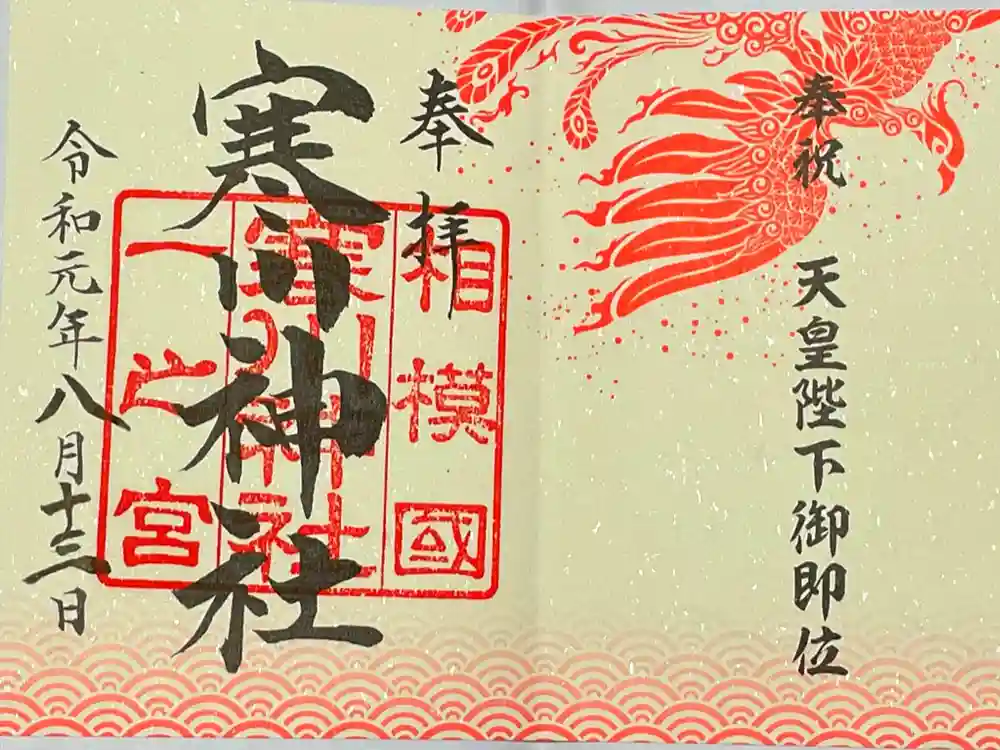 奉祝 天皇陛下御即位
奉拝
寒川神社
令和元年八月十三日
相模國
寒川神社
一之宮